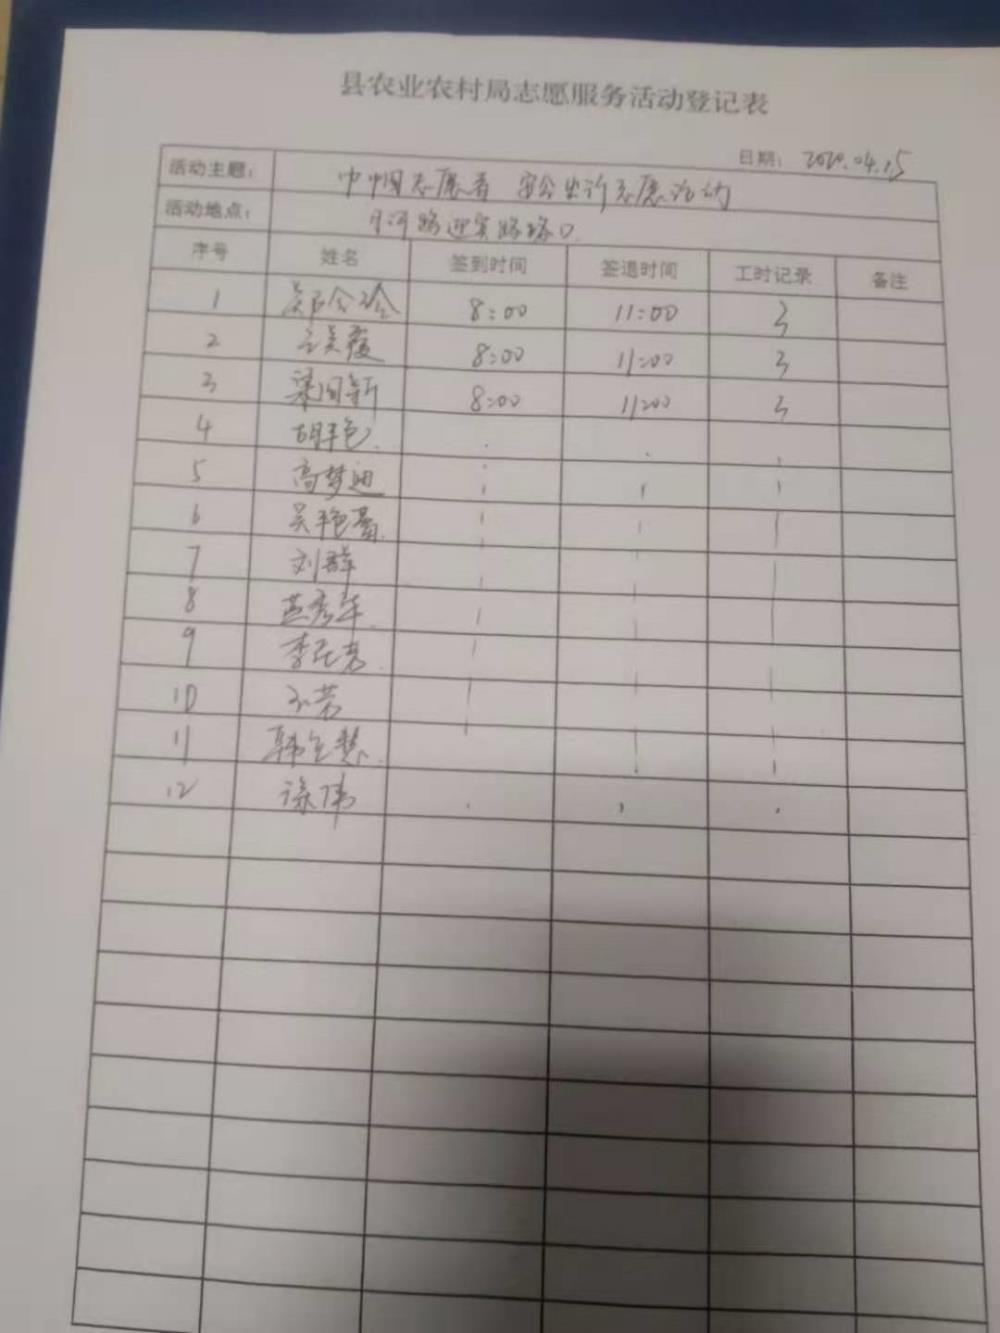 县农业农村局志愿服务活动登记表
日期： 2020.04.15
活动主题： 巾帼志愿者 安全出行志愿活动
活动地点： 月河路迎宾路路口
序号 姓名 签到时间 签退时间 工时记录 备注
1 8:00 11:00 3
2 8:00 11:00 3
3 8:00 11:00 3
4 胡艳
5 高梦迪
6 吴艳
7 刘群
8
9 李
10
11 韩
12 徐伟